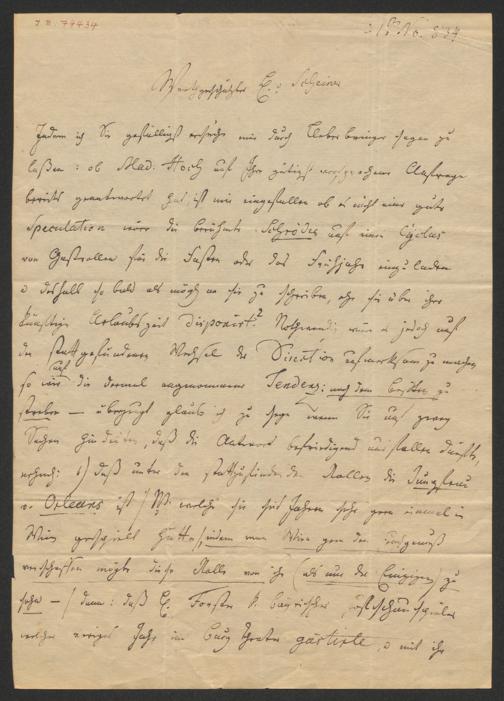 I. N. 79434
837
Wertgeschätzter
Indem ich Sie gefälligst ersuche mir durch Ueberbringer sagen zu
laßen: ob Mad: auf Ihre gütigst Anfrage
bereits geantwortet hat, ist mir eingefallen ob es nicht eine gute
Speculation wäre die berühmte Schröder auf einen Cyclus
von Gastrollen für die Fasten oder das Frühjahr einzuladen
u deshalb so bald als möglich an sie zu schreiben, ehe sie über ihre
künftige Urlaubszeit disponirt? Nothwendig wäre es jedoch auf
den stattgefundenen Wechsel der Direction aufmerksam zu machen,
so wie auf die dermal angenommene Tendenz: nach dem Besten zu
streben — überzeugt glaub ich zu wenn Sie auf zwey
Sachen hindeuten, daß die Antwort befriedigend ausfallen dürfte,
1) daß unter den stattzufindenden Rollen die Jungfrau
v Orleans ist / welche sie seit Jahren sehr gern einmal in
Wien gespielt hätte / indem man Wien gern den
verschaffen möchte diese Rolle von ihr (als nur der Einzigen) zu
sehn — / dann: daß H. k. bayrischer Hofschauspieler
welcher voriges Jahr im Burg Theater gastirte, u mit ihr